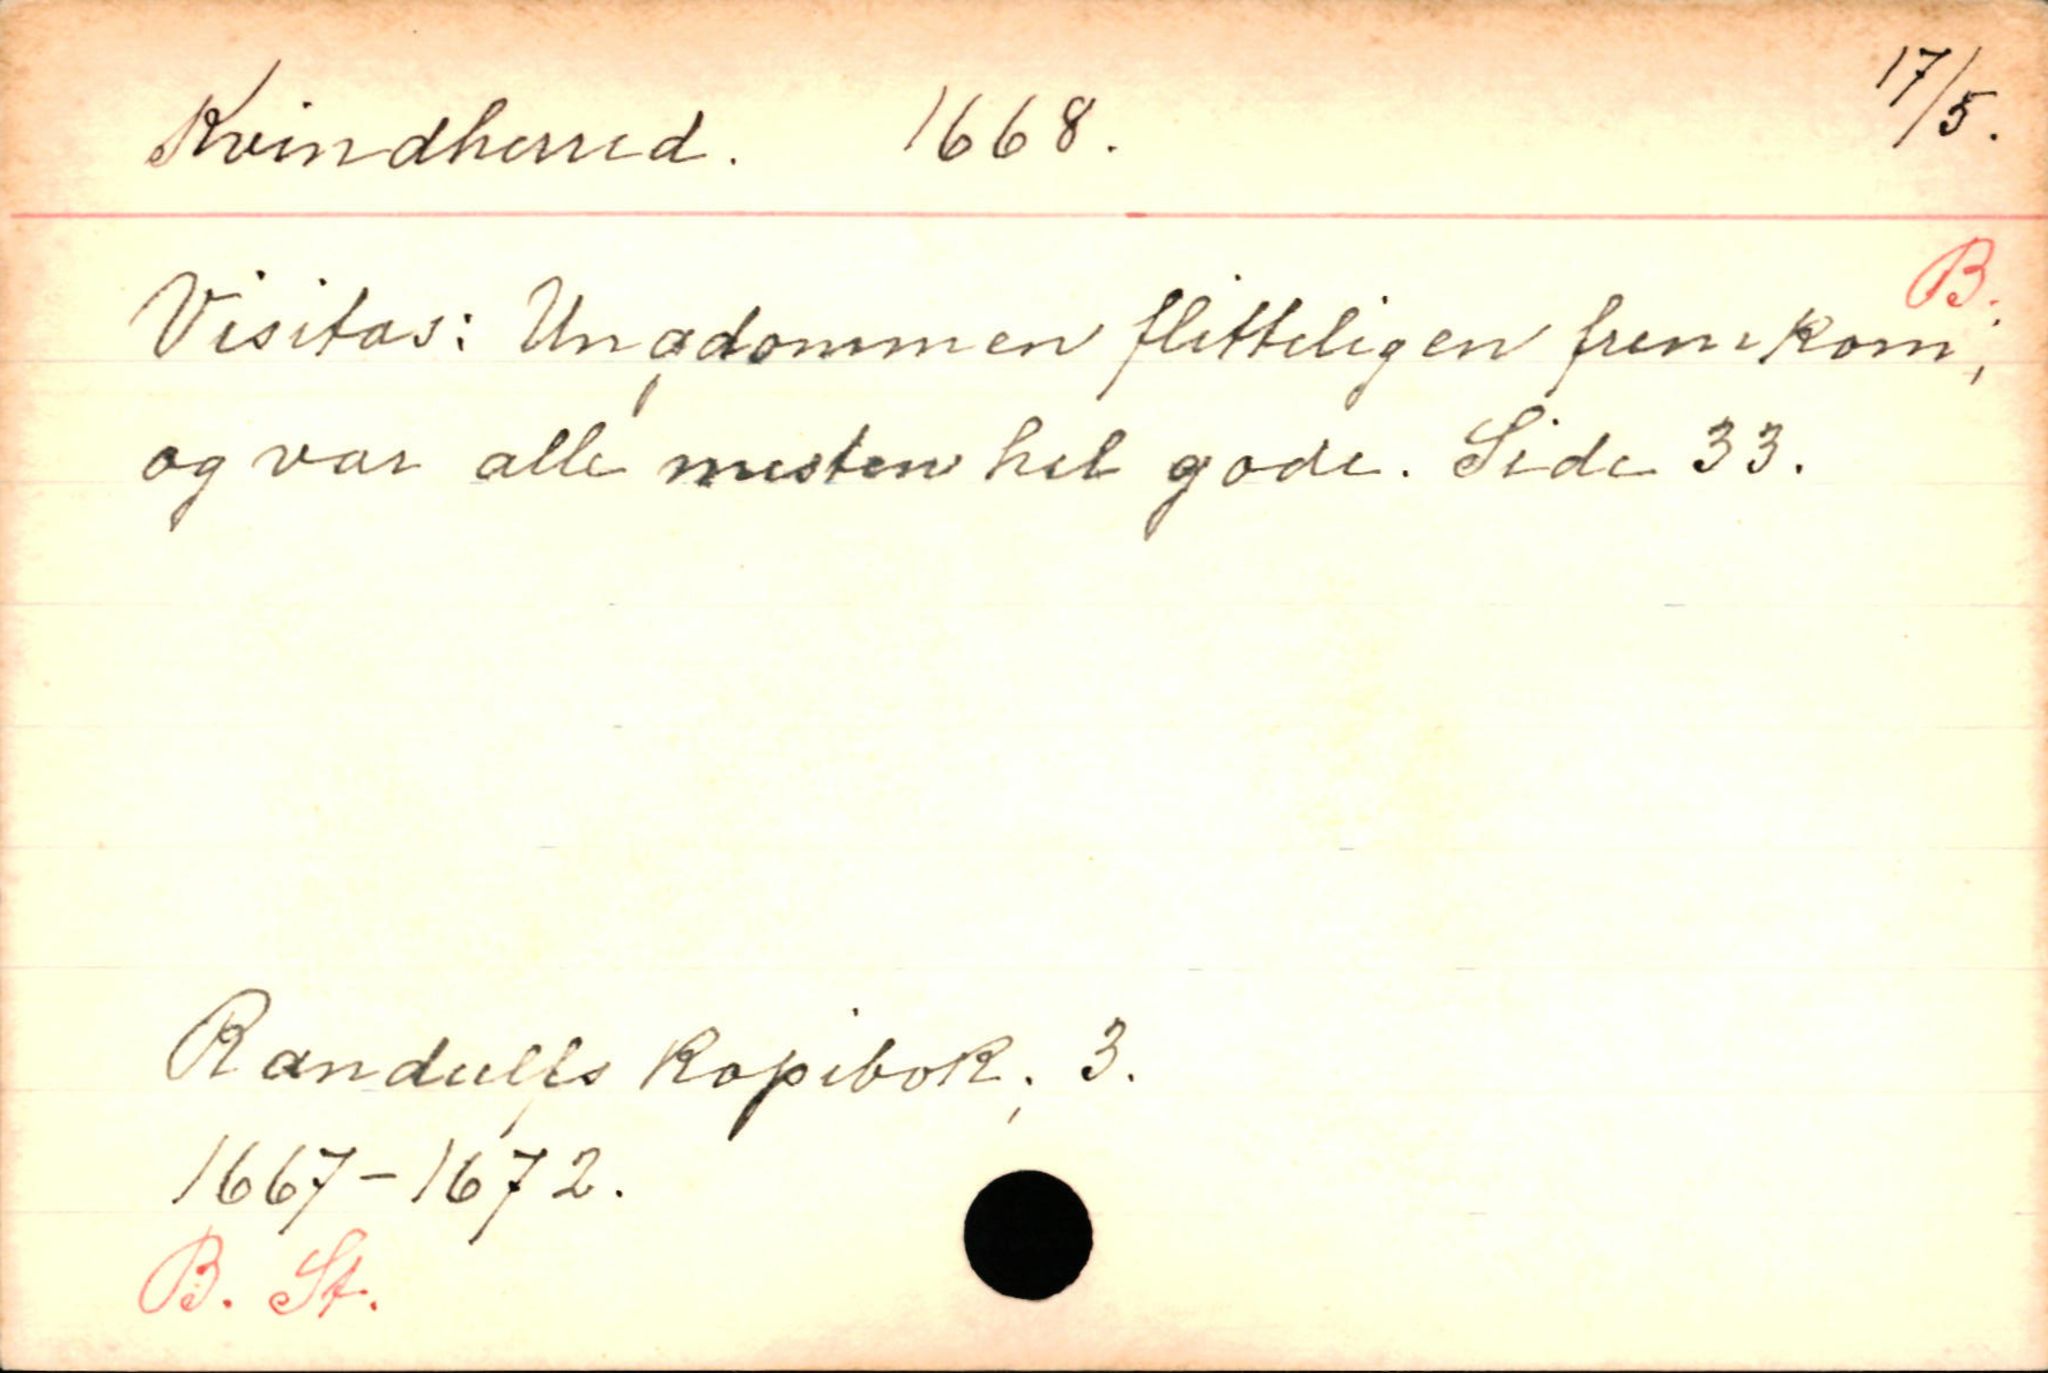 Kvindherred. 1668. 17/5.
B.
Visitas: Ungdommen flitteligen fremkom,
og var alle mesten hel gode. Side 33.
Randulfs Kopibok, 3.
1667-1672.
B. St.